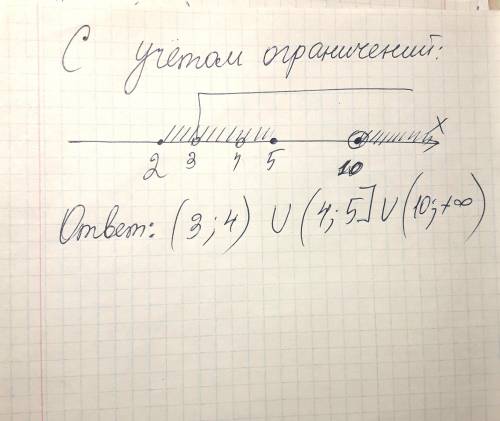 С учётом ограничений:
x
2 3 4 5 10
Ответ: (3; 4) ∪ (4; 5] ∪ (10; +∞)